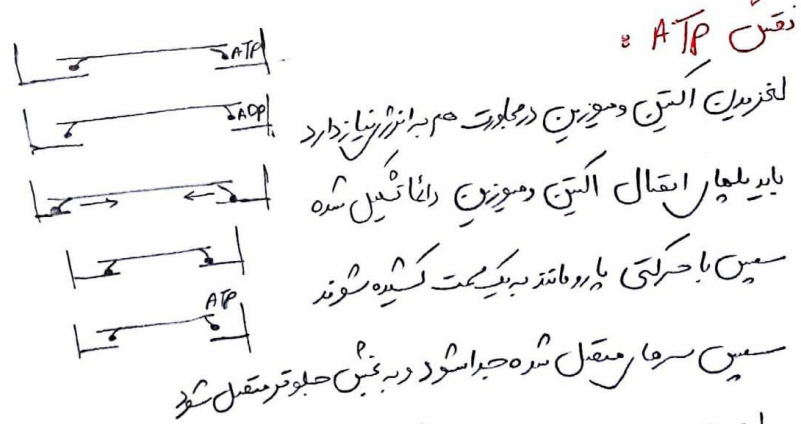 نقش ATP :
لغزیدن اکتین و میوزین در مجاورت هم به انرژی نیاز دارد
باید پلهای اتصال اکتین و میوزین دائما تشکیل شده
سپس با حرکتی پارو مانند به یک سمت کشیده شوند
سپس سرهای متصل شده جدا شود و به بخش جلوتر متصل شود
ATP
ADP
ATP